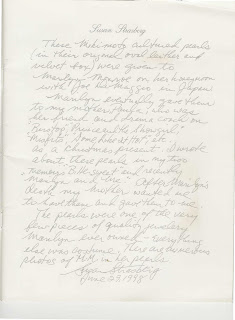 Susan Strasberg
These Mikimoto cultured pearls
(in their original oval leather and
velvet box) were given to
Marilyn Monroe on her honeymoon
with Joe DiMaggio in Japan
Marilyn eventually gave them
to my mother, Paula, who was
her friend and drama coach on
Bus Stop, Prince and the Showgirl,
Misfits, Some Like it Hot, etc.
as a Christmas present. I wrote
about these pearls in my two
memoirs Bittersweet and recently
Marilyn and Me. After Marilyn's
death my mother wanted me
to have them and gave them to me.
The pearls were one of the very
few pieces of quality jewelry
Marilyn ever owned - everything
else was costume. There are numerous
photos of MM in her pearls.
Susan Strasberg
June 23 1998